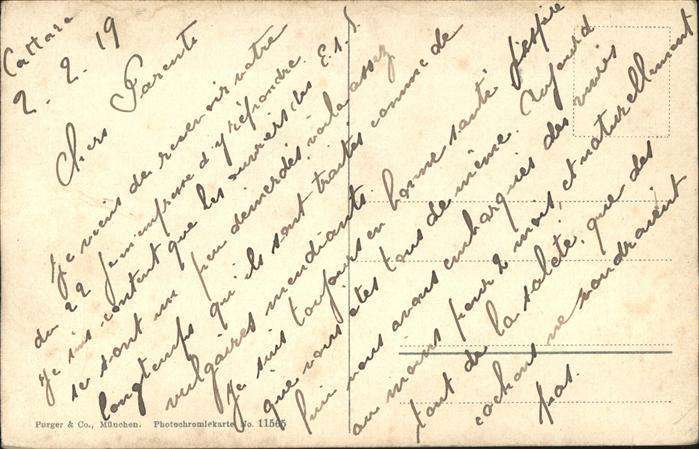 Cattaro
2. 2. 19
Chers Parents
Je viens de recevoir votre
du 22 je m'empresse d'y répondre.
Je suis content que les ouvriers des E.I.S
se sont un peu demerdés, voila assez
longtemps qu'ils sont traités comme de
vulgaires mendiants.
Je suis toujours en bonne santé j'espère
que vous êtes tous de même. Aujourd
hui nous avons embarqués des vivres
au moins pour 2 mois, et naturellement
tout de la saleté, que des
cochons ne voudraient
pas.
Purger & Co., München. Photochromiekarte No. 11565